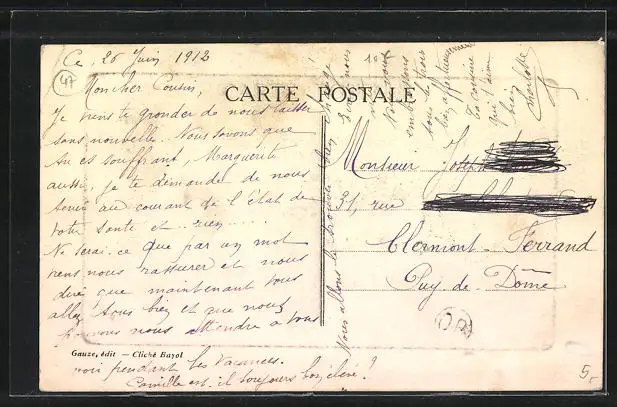 Ce, 26 Juin 1912
47
Mon cher Cousin,
CARTE POSTALE
Je viens te gronder de nous laisser
sans nouvelle. Nous savons que
tu es souffrant, Marguerite
aussi, je te demander de nous
tenir au courant de l'état de
votre santé et rien ....
Ne serai-ce que par un mot
viens nous rassurer et nous
dire que maintenant vous
allez tous bien et que nous
pouvons nous attendre à vous
Gauze, édit — Cliché Bayol
voir pendant les vacances.
Camille est-il toujours bon élève ?
Monsieur Joseph
31, rue
Clermont-Ferrand
Puy-de-Dôme
Nous allons bien
nous
Nous vous
embrassons
tous les trois
bien affectueusement
Ta cousine
qui t'aime
bien
Charlotte
5,-